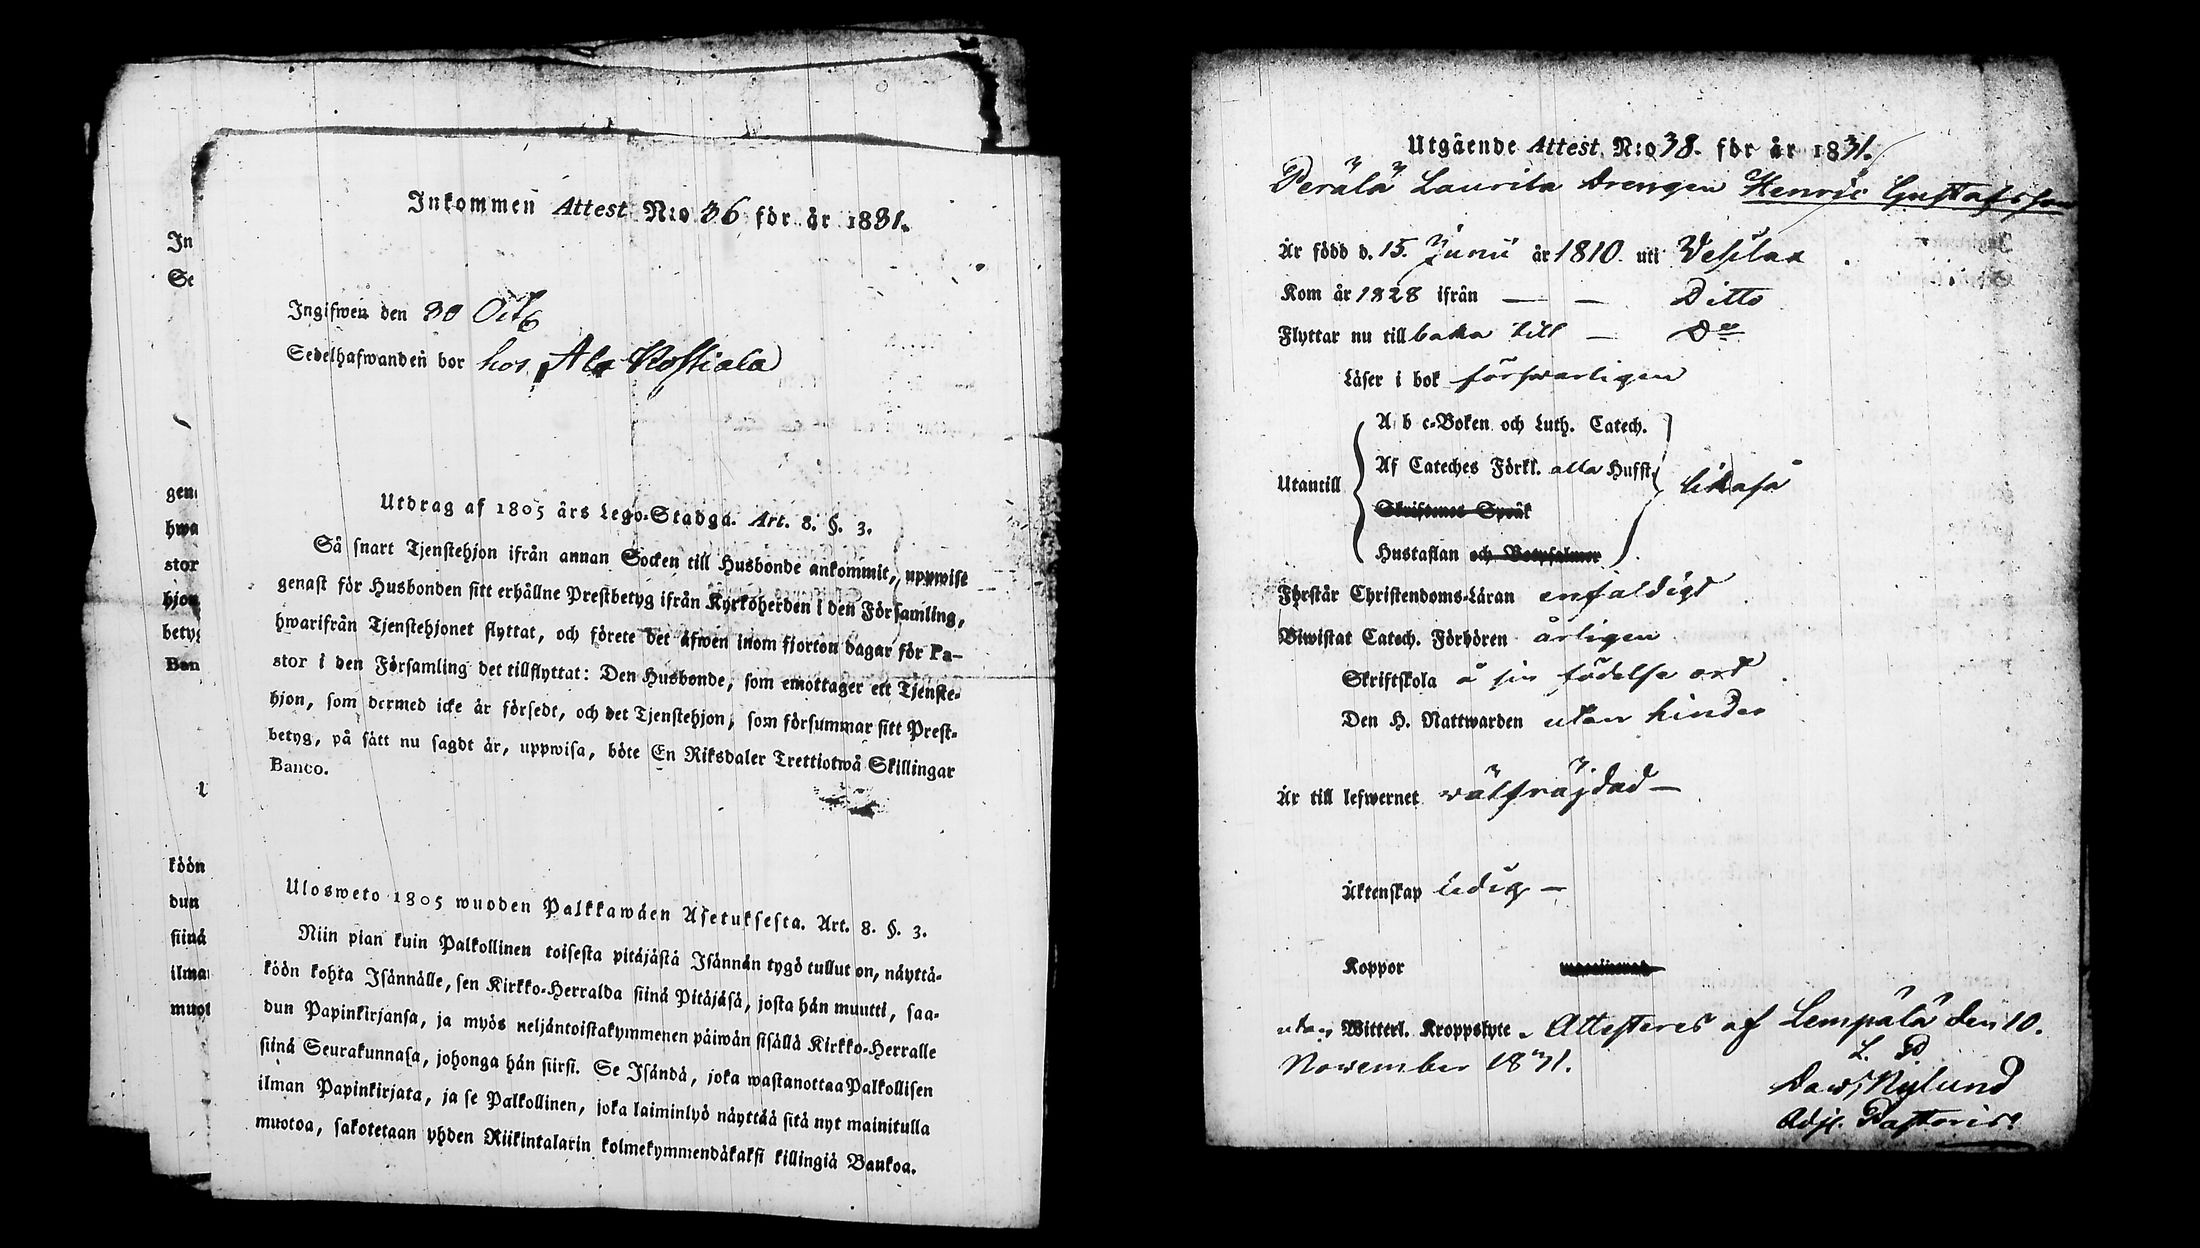 In
Se
gen
hwa
stor
hjon
bety
Ban
köön
dun
siinä
ilma
muot
Inkommen Attest N:o 36 för år 1831.
Ingifwen den 30 Octb
Sedelhafwanden bor hos Ala Kossiala
Utdrag af 1805 års Lego-Stadga. Art. 8. §. 3.
Så snart Tjenstehjon ifrån annan Socken till Husbonde ankommit, uppwise
genast för Husbonden sitt erhållne Prestbetyg ifrån Kyrkoherden i den Församling,
hwarifrån Tjenstehjonet flyttat, och förete det äfwen inom fjorton dagar för Pa-
stor i den Församling det tillflyttat: Den Husbonde, som emottager ett Tjenste-
hjon, som dermed icke är försedt, och det Tjenstehjon, som försummar sitt Prest-
betyg, på sätt nu sagdt är, uppwisa, böte En Riksdaler Trettiotwå Skillingar
Banco.
Ulosweto 1805 wuoden Palkkawäen Asetuksesta. Art. 8. §. 3.
Niin pian kuin Palkollinen toisesta pitäjästä Isännän tygö tullut on, näyttä-
köön kohta Isännälle, sen Kirkko-Herralda siinä Pitäjäsä, josta hän muutti, saa-
dun Papinkirjansa, ja myös neljäntoistakymmenen päiwän sisällä Kirkko-Herralle
siinä Seurakunnasa, johonga hän siirsi. Se Isändä, joka wastanottaa Palkollisen
ilman Papinkirjata, ja se Palkollinen, joka laiminlyö näyttää sitä nyt mainitulla
muotoa, sakotetaan yhden Riikintalarin kolmekymmendäkaksi killingiä Bankoa.
Utgående Attest N:o 38. för år 1831.
Perälä Laurila Drengen Henric Gustafsson
Är född d. 15. Junii år 1810 uti Vesilax
Kom år 1828 ifrån — — Ditto
Flyttar nu till baka till — Do
Läser i bok förswarligen
A b c-Boken och Luth. Catech.
Af Cateches Förkl. alla Hufst.
Utantill likaså
Skriftenes Språk
Hustaflan och Botpsalmer
Förstår Christendoms-Läran enfaldigt
Biwistat Catech. Förhören årligen
Skriftskola å sin födelse ort
Den H. Nattwarden utan hinder
Är till lefwernet wälfräjdad —
Äktenskap ledig —
Koppor
utan Witterl. Kroppslyte. Attesteres af Lempälä den 10.
November 1831.
L. P
Daw. Nylund
Adj. Pastoris.